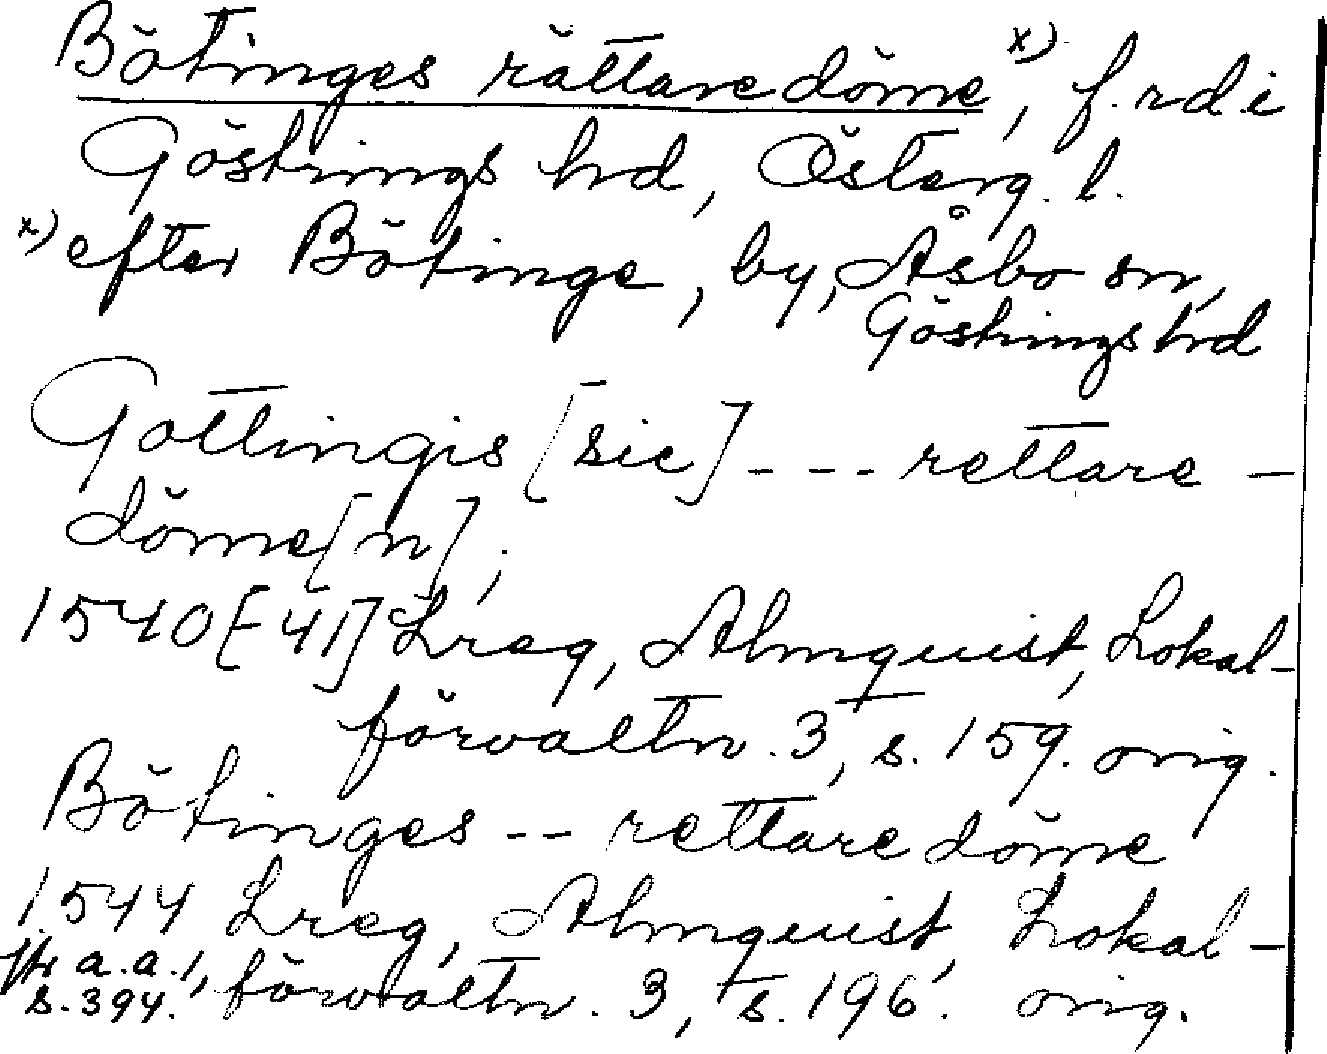 Bötinges rättaredöme x), f.rd.i
Göstrings hd, Österg. l.
x) efter Bötinge, by, Åsbo sn,
Göstrings hd
Gottingis [sic] - - - rettare -
döme[n];
1540[-41] Lreg, Almquist, Lokal-
förvaltn. 3, s. 159. orig.
Bötinges -- rettaredöme
1544 Lreg, Almquist, Lokal-
jfr a.a.1, förvaltn. 3, s. 196. orig.
s. 394.